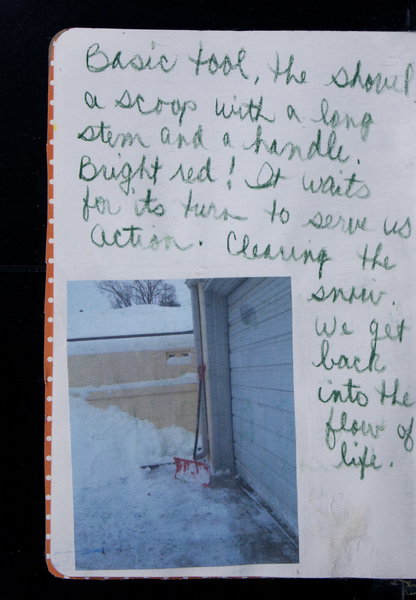 Basic tool, the shovel
a scoop with a long
stem and a handle.
Bright red! It waits
for its turn to serve us
action. Clearing the
snow.
We get
back
into the
flow of
life.